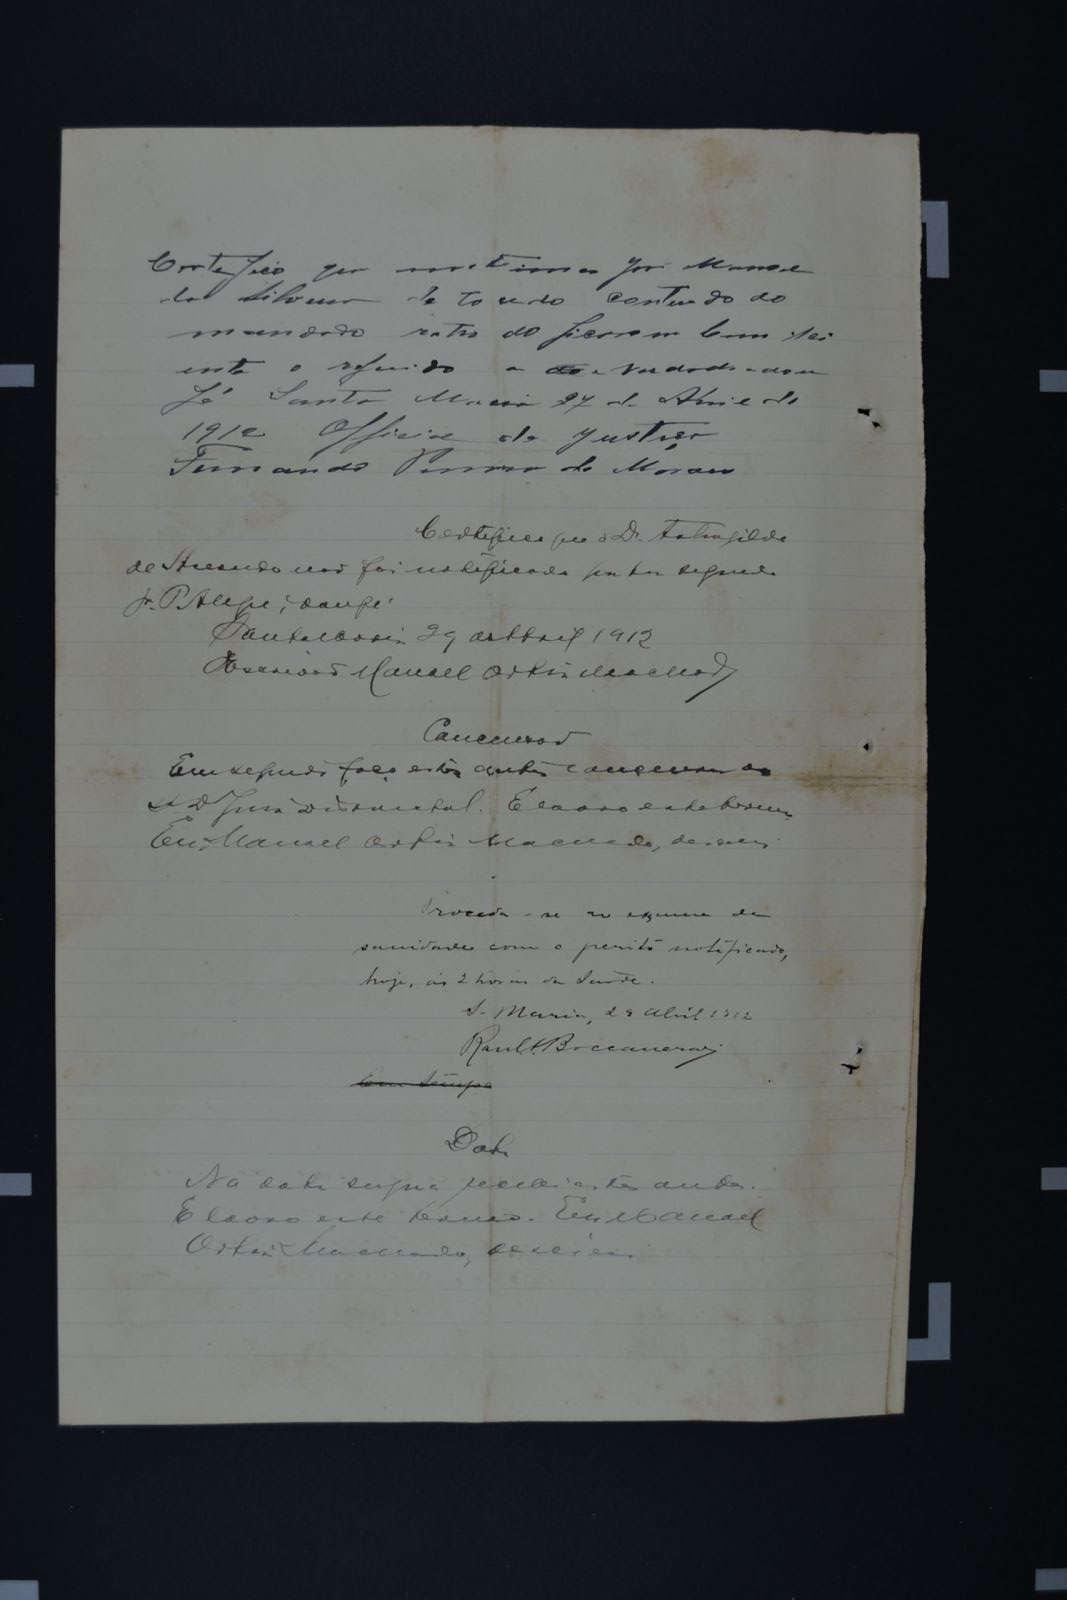 Certefico que notimei José Manoel
da Silveira de todo contendo do
mandado retro do ficaram bem sci
ente o referido e verdade dou
fé Santa Maria 27 de Abril de
1912 Official de Justiça
Fernando de Moraes
Certifico que o Dr.
de não foi notificado por ter seguido
pr. P. Alegre; dou fé.
Santa Maria 29 de Abril 1912
Escrivão Manoel Machado
Conclusão
Em seguida faço estes autos conclusos ao
Sr Dr Juiz Districtal. E lavro este termo.
Eu Manoel Machado, escrevi
Proceda-se ao exame de
sanidade com o perito notificado,
hoje, ás 2 horas da tarde.
S. Maria, 29 Abril 1912
Raul Boccanera
Em tempo
Data
Na data supra recebi estes autos.
E lavro este termo. Eu Manoel
Machado, escrevi